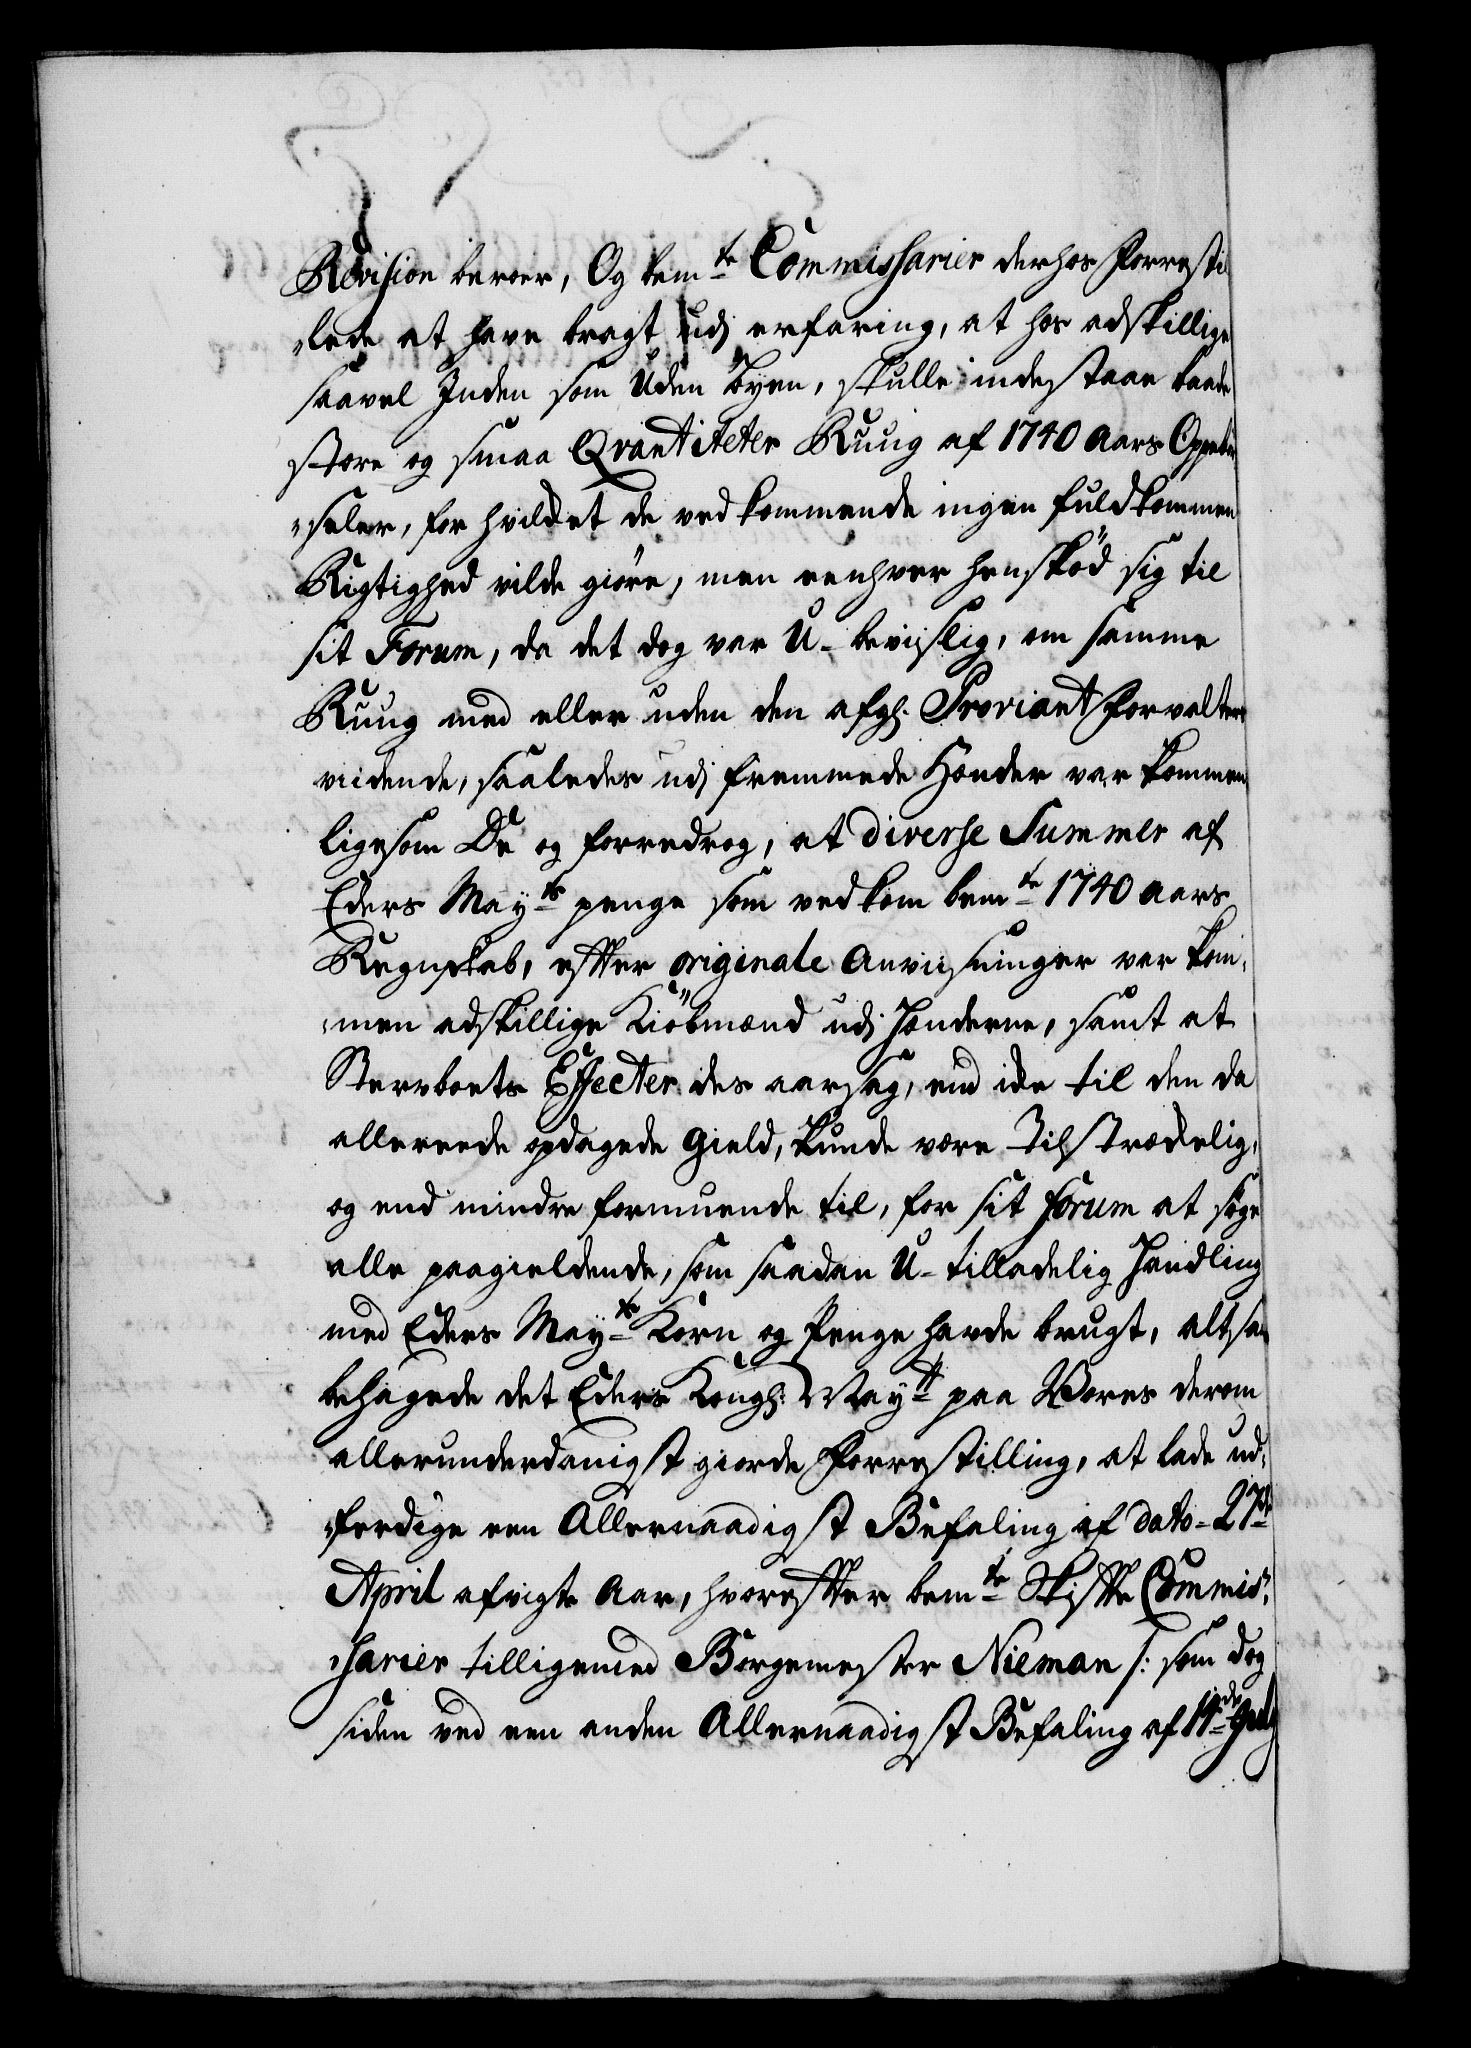 Revision beroer, Og bem<sup>te</sup> Commissarier derhos forresti
„lede at have bragt udj erfaring, at hos adskillige
saavel Inden som Uden byen, skulle indestaae baade
store og smaa Qvantiteter Ruug af 1740 aars Oppebør
„seler, for hvilket de vedkommende ingen fuldkommen
Rigtighed vilde giøre, men eenhver henskød sig til
sit Forum, da det dog var U-beviislig, om samme
Ruug med eller uden den afg: Proviant forvalters
viidende, saaledes udj fremmede Hænder var kommen
ligesom De og forredrog, at diverse Summer af
Eders May<sup>ts</sup> penge som vedkom bem<sup>te</sup> 1740 aars
Regnskab, effter originale anviisninger var kom„
„men adskillige Kiøbmænd udj Hænderne, samt at
Stervboets Effecter des aarsag, end icke til den da
allereede opdagede gield, kunde være tilstrædelig,
og end mindre formuende til, for sit forum at søge
alle paagieldende, som saadan U-tilladelig Handling
med Eders May<sup>ts</sup> Korn og Penge havde brugt, altsaa
behagede det Eders Kongl: May<sup>tt</sup> paa Vores derom
allerunderdanigst giorde forrestilling, at lade ud„
„ferdige een Allernaadigst Befaling af dato 27<sup>de</sup>
April afvigte Aar, hvoreffter bem<sup>te</sup> Skiffte Commis„
„sarier tilligemed Borgemester Nieman /: som dog
siden ved een anden Allernaadigst Befaling af 14<sup>de</sup> July